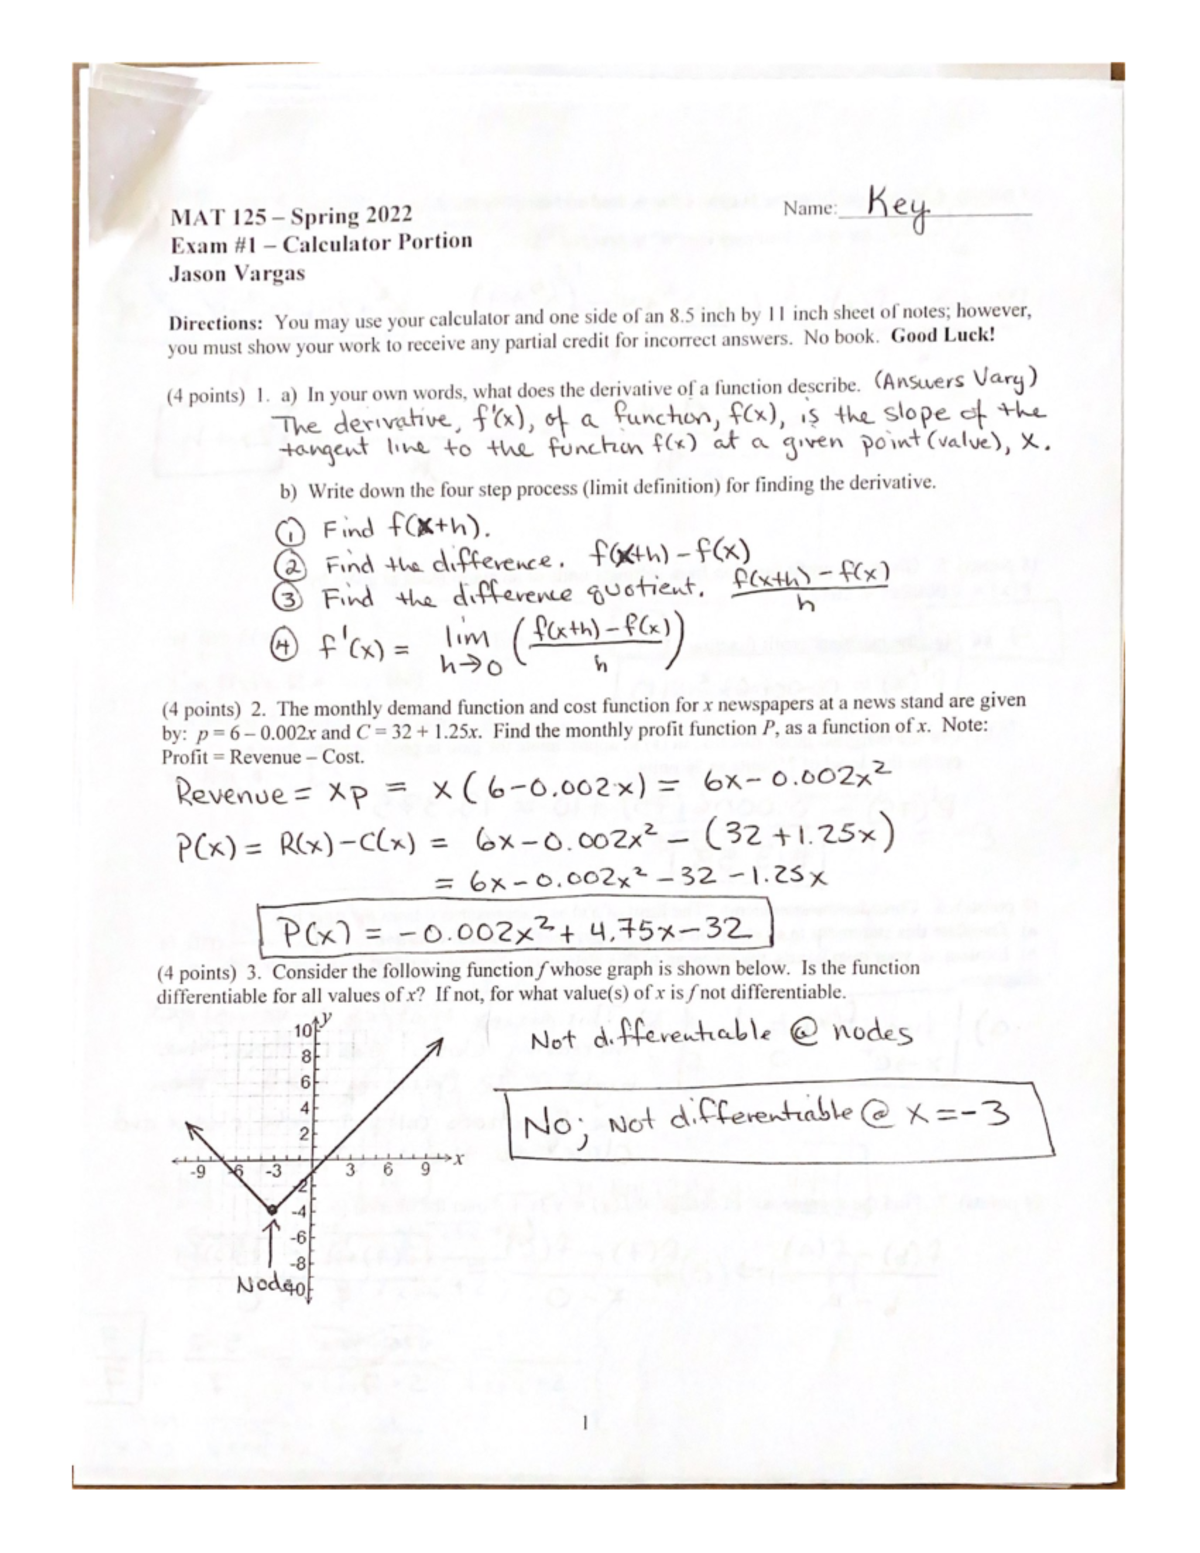 MAT 125 – Spring 2022
Name: Key
Exam #1 – Calculator Portion
Jason Vargas
Directions: You may use your calculator and one side of an 8.5 inch by 11 inch sheet of notes; however,
you must show your work to receive any partial credit for incorrect answers. No book. Good Luck!
(4 points) 1. a) In your own words, what does the derivative of a function describe. (Answers Vary)
The derivative, f'(x), of a function, f(x), is the slope of the
tangent line to the function f(x) at a given point (value), x.
b) Write down the four step process (limit definition) for finding the derivative.
① Find f(x+h).
② Find the difference. f(x+h) – f(x)
③ Find the difference quotient. f(x+h) – f(x)
h
④ f'(x) = lim h→0 (f(x+h) – f(x) / h)
(4 points) 2. The monthly demand function and cost function for x newspapers at a news stand are given
by: p = 6 – 0.002x and C = 32 + 1.25x. Find the monthly profit function P, as a function of x. Note:
Profit = Revenue – Cost.
Revenue = xp = x(6-0.002x) = 6x - 0.002x²
P(x) = R(x) - C(x) = 6x - 0.002x² - (32 + 1.25x)
= 6x - 0.002x² - 32 - 1.25x
P(x) = -0.002x² + 4.75x - 32
(4 points) 3. Consider the following function f whose graph is shown below. Is the function
differentiable for all values of x? If not, for what value(s) of x is f not differentiable.
Not differentiable @ nodes
No; Not differentiable @ x = -3
y
10
8
6
4
2
-9 -6 -3 3 6 9 x
-2
-4
-6
-8
Node
1